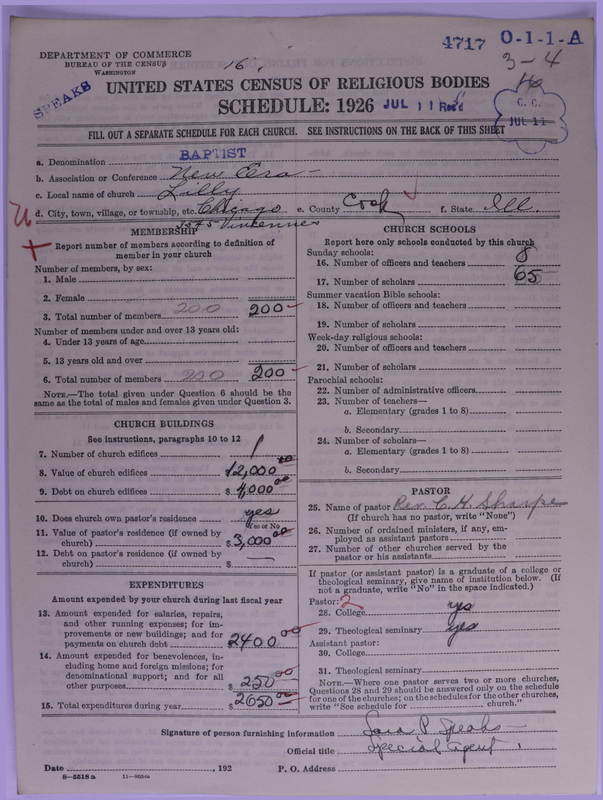 4717 O-1-1-A
3-4
DEPARTMENT OF COMMERCE
BUREAU OF THE CENSUS
WASHINGTON
16
SPEAKS
UNITED STATES CENSUS OF RELIGIOUS BODIES
SCHEDULE: 1926 JUL 11 Rec'd
C. C.
JUL 11
FILL OUT A SEPARATE SCHEDULE FOR EACH CHURCH. SEE INSTRUCTIONS ON THE BACK OF THIS SHEET
a. Denomination BAPTIST
b. Association or Conference New Era
c. Local name of church Lilly
d. City, town, village, or township, etc. Chicago e. County Cook f. State Ill.
Vincennes
MEMBERSHIP
Report number of members according to definition of
member in your church
Number of members, by sex:
1. Male
2. Female
3. Total number of members 200 200
Number of members under and over 13 years old:
4. Under 13 years of age
5. 13 years old and over
6. Total number of members 200 200
NOTE.—The total given under Question 6 should be the
same as the total of males and females given under Question 3.
CHURCH BUILDINGS
See instructions, paragraphs 10 to 12
7. Number of church edifices 1
8. Value of church edifices $12,000 00
9. Debt on church edifices $4,000 00
10. Does church own pastor's residence yes
Yes or No
11. Value of pastor's residence (if owned by
church) $3,000 00
12. Debt on pastor's residence (if owned by
church) $ —
EXPENDITURES
Amount expended by your church during last fiscal year
13. Amount expended for salaries, repairs,
and other running expenses; for im-
provements or new buildings; and for
payments on church debt 2400 00
14. Amount expended for benevolences, in-
cluding home and foreign missions; for
denominational support; and for all
other purposes $250 00
15. Total expenditures during year $2650 00
CHURCH SCHOOLS
Report here only schools conducted by this church
Sunday schools:
16. Number of officers and teachers 8
17. Number of scholars 65
Summer vacation Bible schools:
18. Number of officers and teachers
19. Number of scholars
Week-day religious schools:
20. Number of officers and teachers
21. Number of scholars
Parochial schools:
22. Number of administrative officers
23. Number of teachers—
a. Elementary (grades 1 to 8)
b. Secondary
24. Number of scholars—
a. Elementary (grades 1 to 8)
b. Secondary
PASTOR
25. Name of pastor Rev. C. H. Sharpe
(If church has no pastor, write "None")
26. Number of ordained ministers, if any, em-
ployed as assistant pastors
27. Number of other churches served by the
pastor or his assistants
If pastor (or assistant pastor) is a graduate of a college or
theological seminary, give name of institution below. (If
not a graduate, write "No" in the space indicated.)
Pastor: 2
28. College yes
29. Theological seminary yes
Assistant pastor:
30. College
31. Theological seminary
NOTE.—Where one pastor serves two or more churches,
Questions 28 and 29 should be answered only on the schedule
for one of the churches; on the schedules for the other churches,
write "See schedule for church."
Signature of person furnishing information Sara P. Speaks
Official title Special Agent
Date , 192 P. O. Address
8—5518a 11—9554a